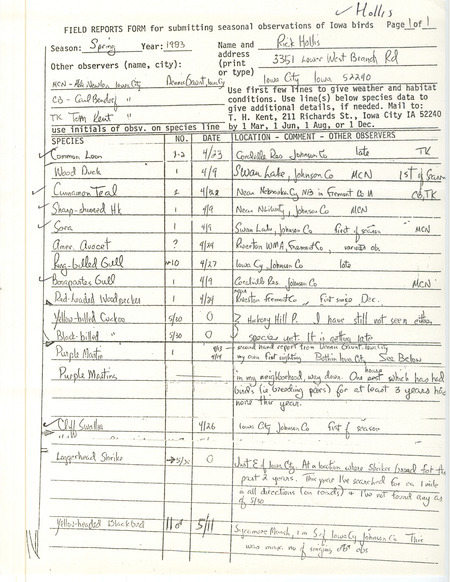 ✓ Hollis
FIELD REPORTS FORM for submitting seasonal observations of Iowa birds Page 1 of 1
Season: Spring Year: 1983 Name and address (print or type) Rick Hollis
3351 Lower West Branch Rd
Iowa City Iowa 52240
Other observers (name, city):
MCN - Newlon, Iowa City
CB - Carl Bendorf "
TK Tom Kent "
use initials of obsv. on species line
Use first few lines to give weather and habitat
conditions. Use line(s) below species data to
give additional details, if needed. Mail to:
T. H. Kent, 211 Richards St., Iowa City IA 52240
by 1 Mar, 1 Jun, 1 Aug, or 1 Dec.
SPECIES NO. DATE LOCATION - COMMENT - OTHER OBSERVERS
Common Loon 1-2 4/23 Coralville Res Johnson Co late TK
Wood Duck 1 4/9 Swan Lake, Johnson Co MCN 1st of Season
Cinnamon Teal in Fremont Co CB, TK
Sharp-shinned Hk 1 4/9 Johnson Co MCN
Sora 1 4/9 Swan Lake, Johnson Co first of season MCN
Amer. Avocet ? 4/24 Riverton WMA, Fremont Co, various obs
Ring-billed Gull 4/27 Iowa City, Johnson Co late
Bonapartes Gull 1 4/9 Coralville Res, Johnson Co MCN
Red-headed Woodpecker 1 4/24 Riverton Fremont Co, first since Dec.
Yellow-billed Cuckoo 5/30 0 Hickory Hill P. I have still not seen either
Black-billed " 5/30 0 species yet. It is getting late
Purple Martin 1 second hand report from Dennis Iowa City
my own first sighting Iowa City. See Below
Purple Martins in my neighborhood, way down. One house which has had
birds (ie breeding pairs) for at least 3 years has
none this year.
Cliff Swallow 4/26 Iowa City Johnson Co first of season
Loggerhead Shrike →5/30 0 Just E of Iowa City. At a location where Shrikes for the
past 2 years. This year I've searched for
in all directions (on roads) + I've not found any as
of 5/30
Yellow-headed Blackbird 11♂ 5/11 Sycamore Marsh, 1 m S of Iowa City Johnson Co This
was max. no of singing ♂♂ obs